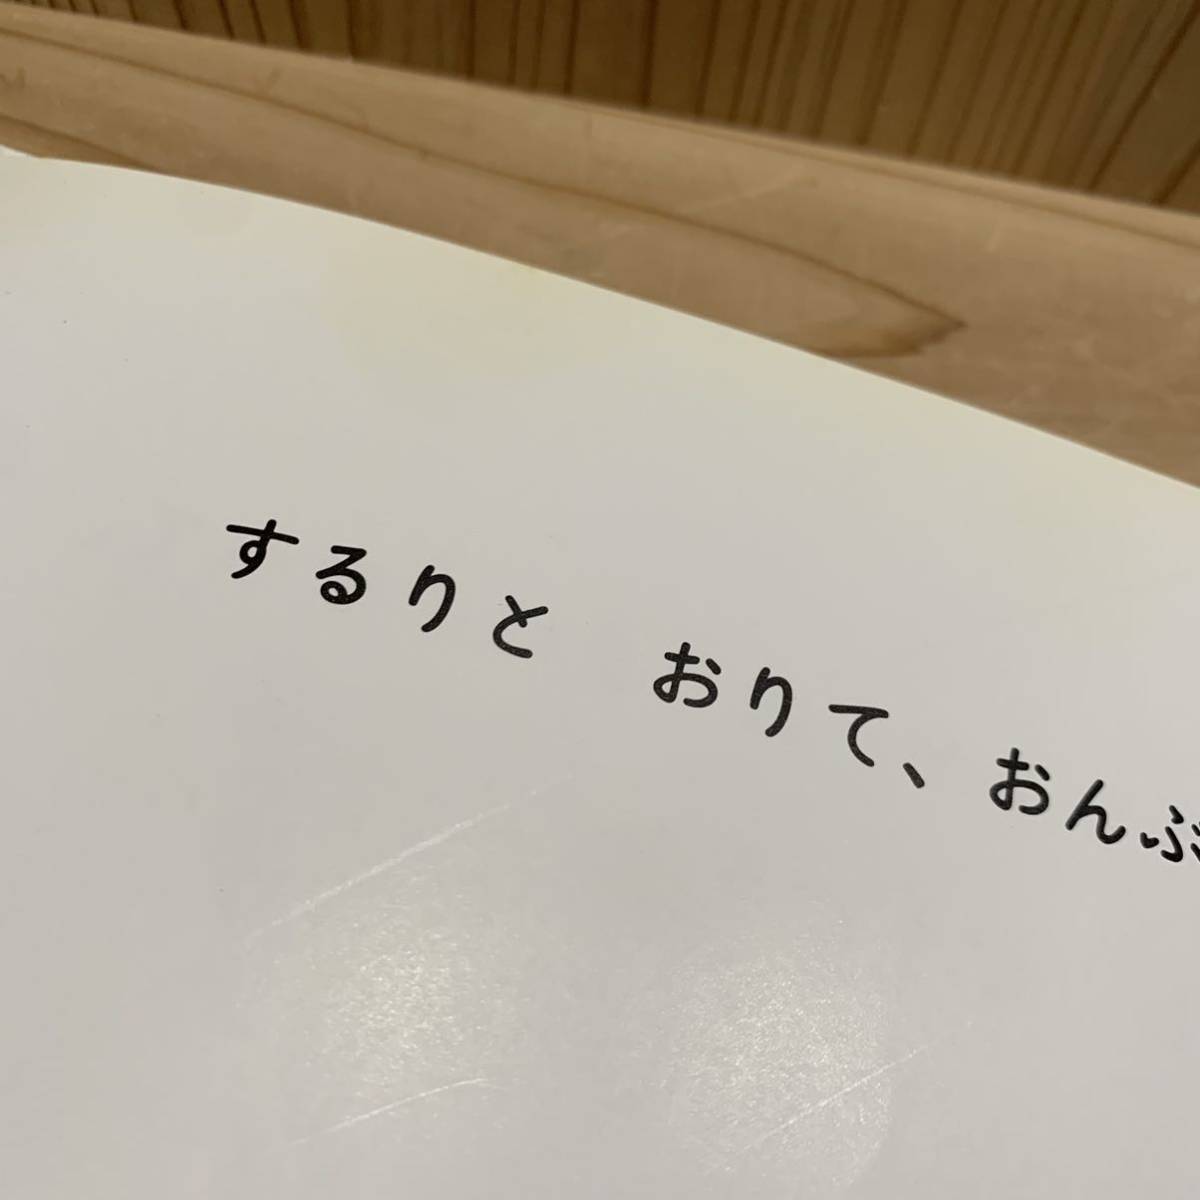 するりと　おりて、おんぶ